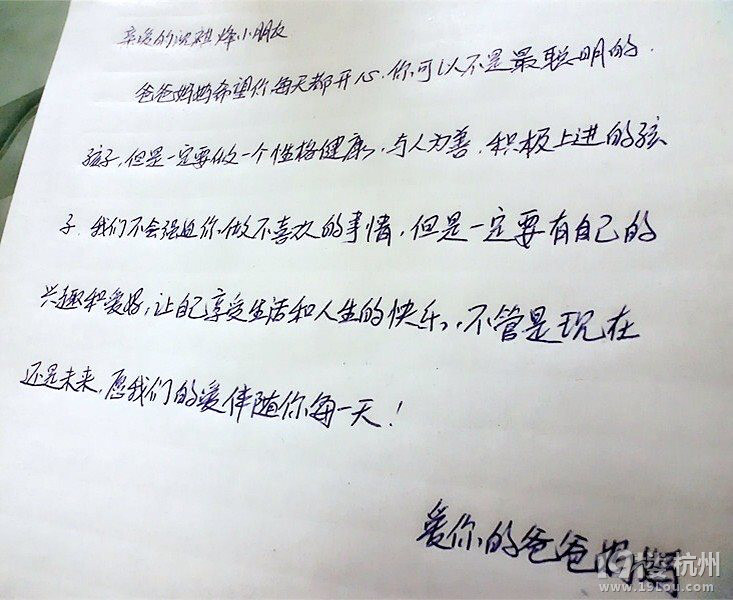 亲爱的沈祺烽小朋友
爸爸妈妈希望你每天都开心.你可以不是最聪明的.
孩子,但是一定要做一个性格健康,与人为善.积极上进的孩
子.我们不会强迫你做不喜欢的事情,但是一定要有自己的
兴趣和爱好,让自己享受生活和人生的快乐,不管是现在
还是未来,愿我们的爱伴随你每一天!
爱你的爸爸妈妈
19楼杭州
www.19Lou.com